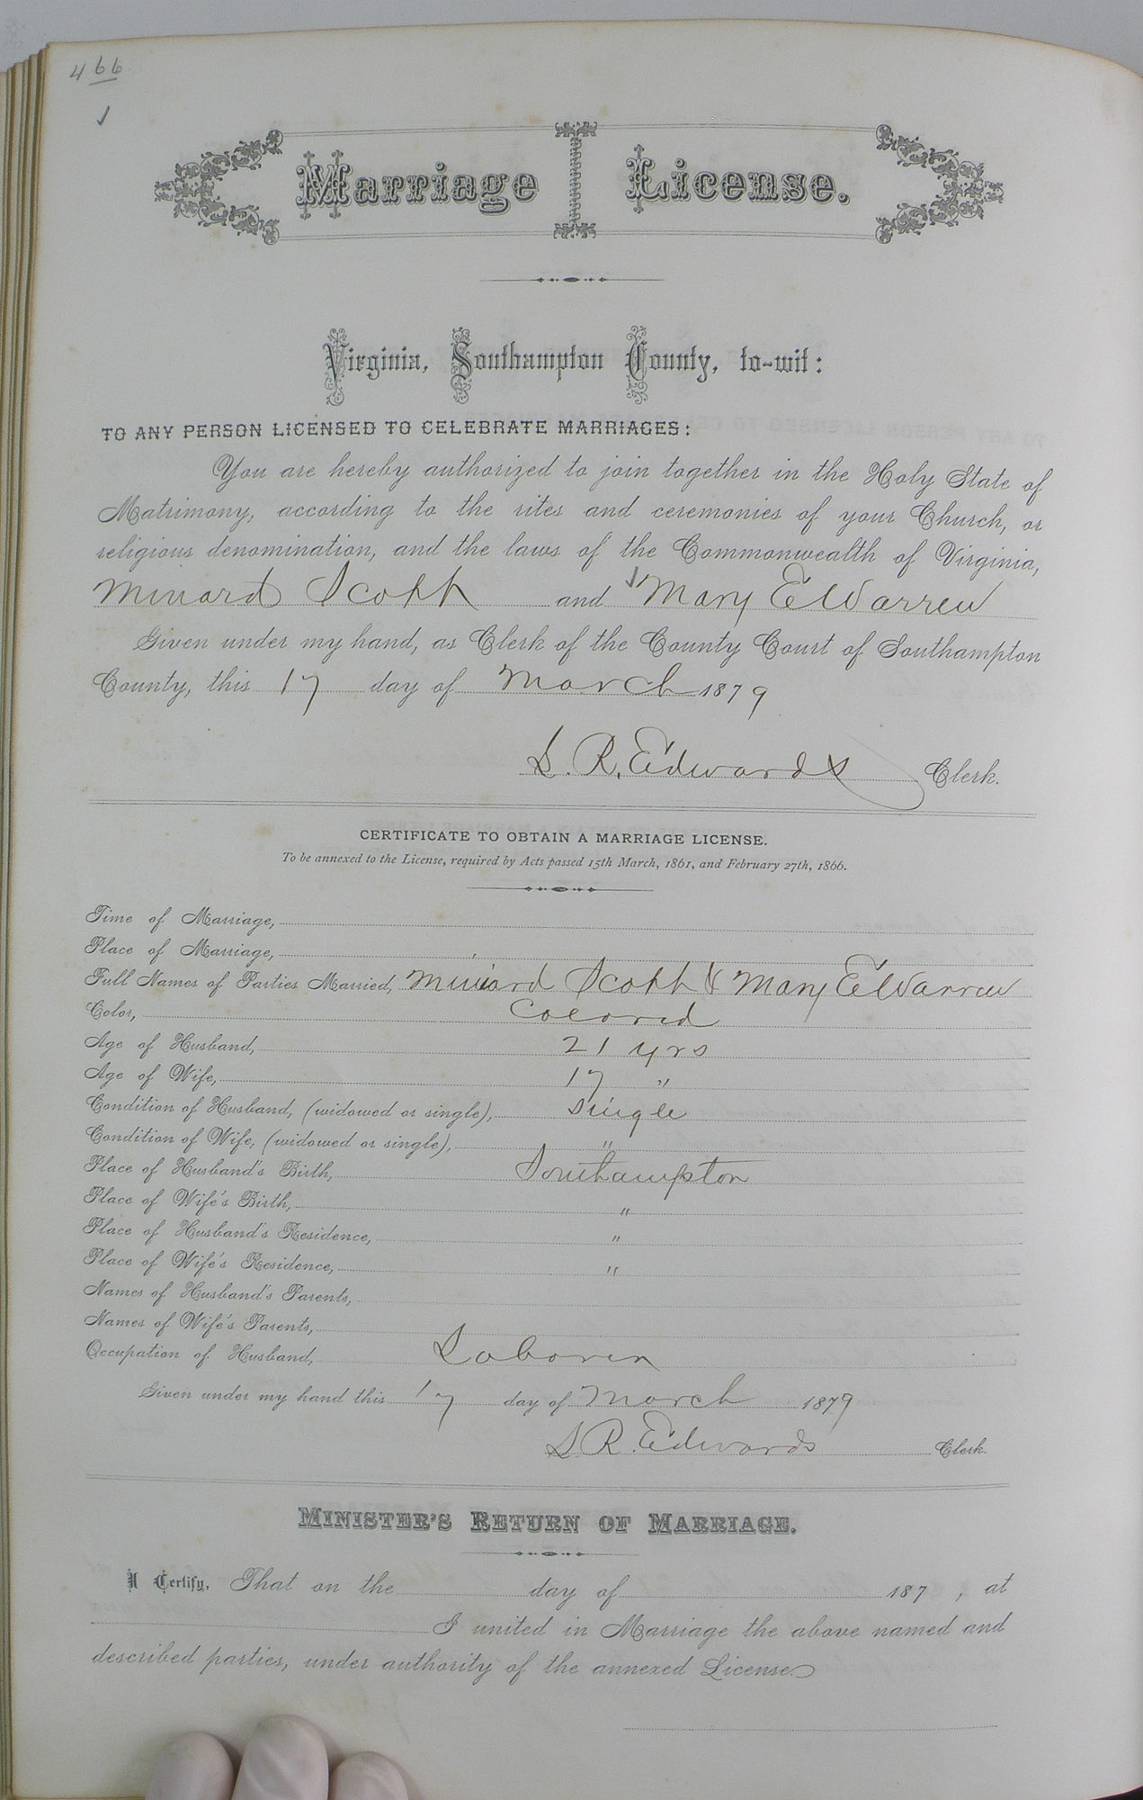 466
Marriage License.
Virginia, Southampton County, to-wit:
TO ANY PERSON LICENSED TO CELEBRATE MARRIAGES:
You are hereby authorized to join together in the Holy State of
Matrimony, according to the rites and ceremonies of your Church, or
religious denomination, and the laws of the Commonwealth of Virginia,
Minard Scott and Mary E Warren
Given under my hand, as Clerk of the County Court of Southampton
County, this 17 day of March 1879
L. R. Edwards Clerk.
CERTIFICATE TO OBTAIN A MARRIAGE LICENSE.
To be annexed to the License, required by Acts passed 15th March, 1861, and February 27th, 1866.
Time of Marriage,
Place of Marriage,
Full Names of Parties Married, Miniard Scott & Mary E Warren
Color, Colored
Age of Husband, 21 yrs
Age of Wife, 17 "
Condition of Husband, (widowed or single), Single
Condition of Wife, (widowed or single), "
Place of Husband's Birth, Southampton
Place of Wife's Birth, "
Place of Husband's Residence, "
Place of Wife's Residence, "
Names of Husband's Parents,
Names of Wife's Parents,
Occupation of Husband, Laborer
Given under my hand this 17 day of March 1879
L. R. Edwards Clerk.
MINISTER'S RETURN OF MARRIAGE.
I Certify, That on the day of 187 , at
I united in Marriage the above named and
described parties, under authority of the annexed License.